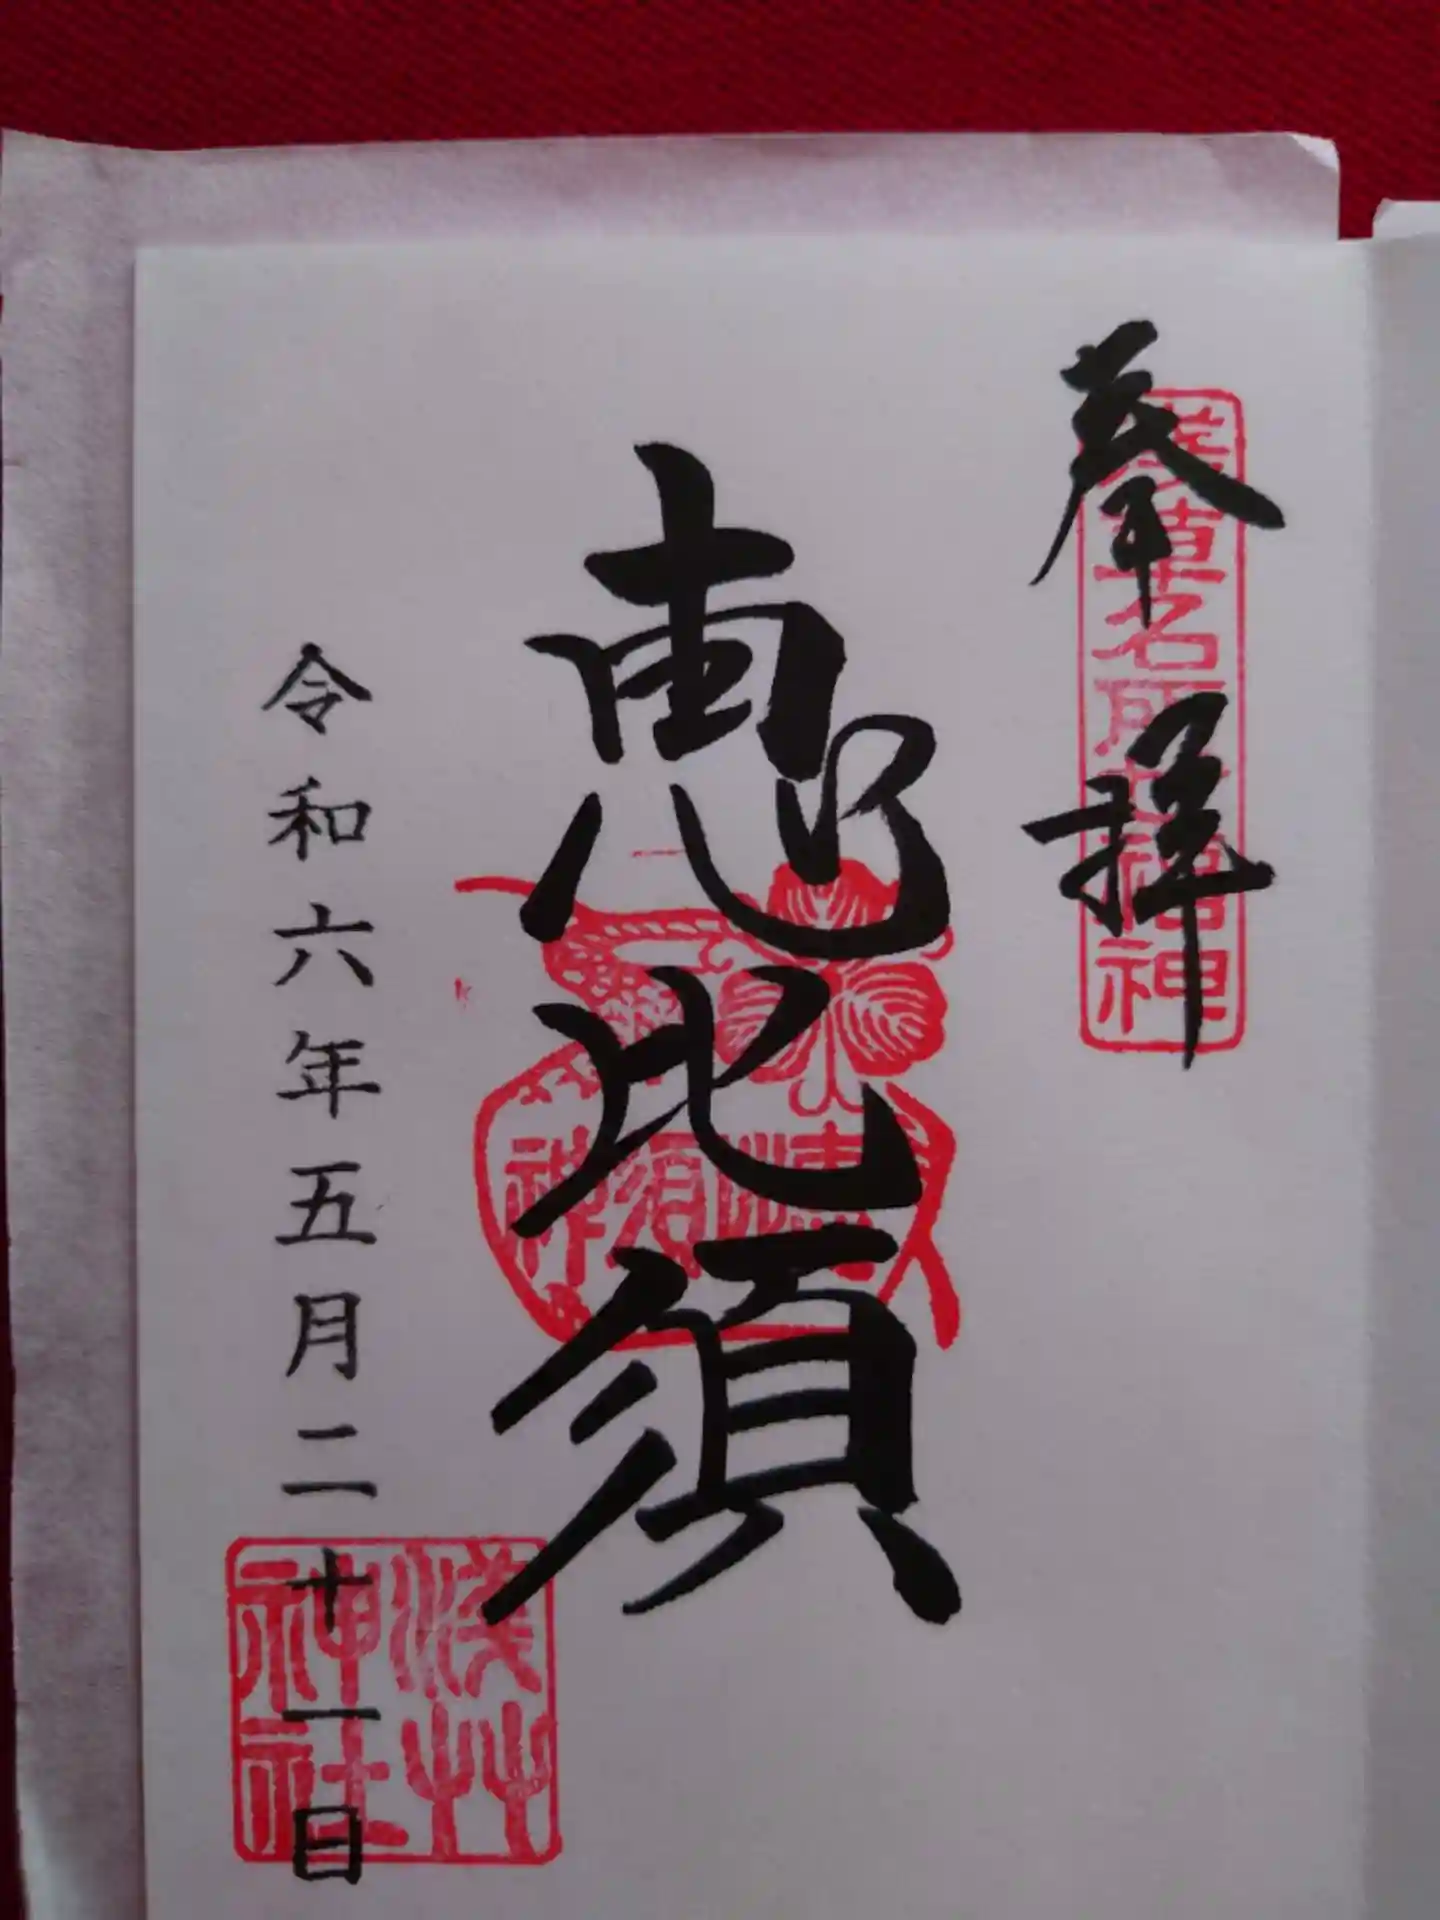 奉拝
浅草名所七福神
恵比須
恵比須神
令和六年五月二十一日
浅草神社